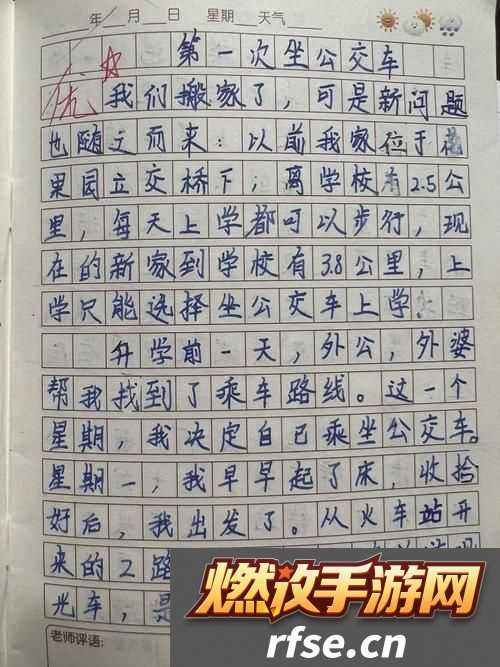 年 月 日 星期 天气
第一次坐公交车
优
我们搬家了，可是新问题
也随之而来：以前我家位于花
果园立交桥下，离学校有2.5公
里，每天上学都可以步行，现
在的新家到学校有3.8公里，上
学只能选择坐公交车上学。
升学前一天，外公，外婆
帮我找到了乘车路线。这一个
星期，我决定自已乘坐公交车。
星期一，我早早起了床，收拾
好后，我出发了。从火车站开
来的2路
光车，是
老师评语:
燃放手游网
rfse.cn